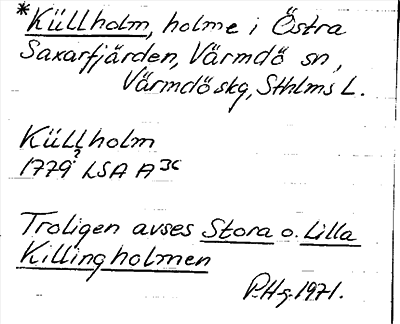 *Küllholm, holme i Östra
Saxarfjärden, Värmdö sn,
Värmdö skg, Sthlms L.
Küllholm
1779? LSA A 36
Troligen avses Stora o. Lilla
Killingholmen
P.Hg. 1971.